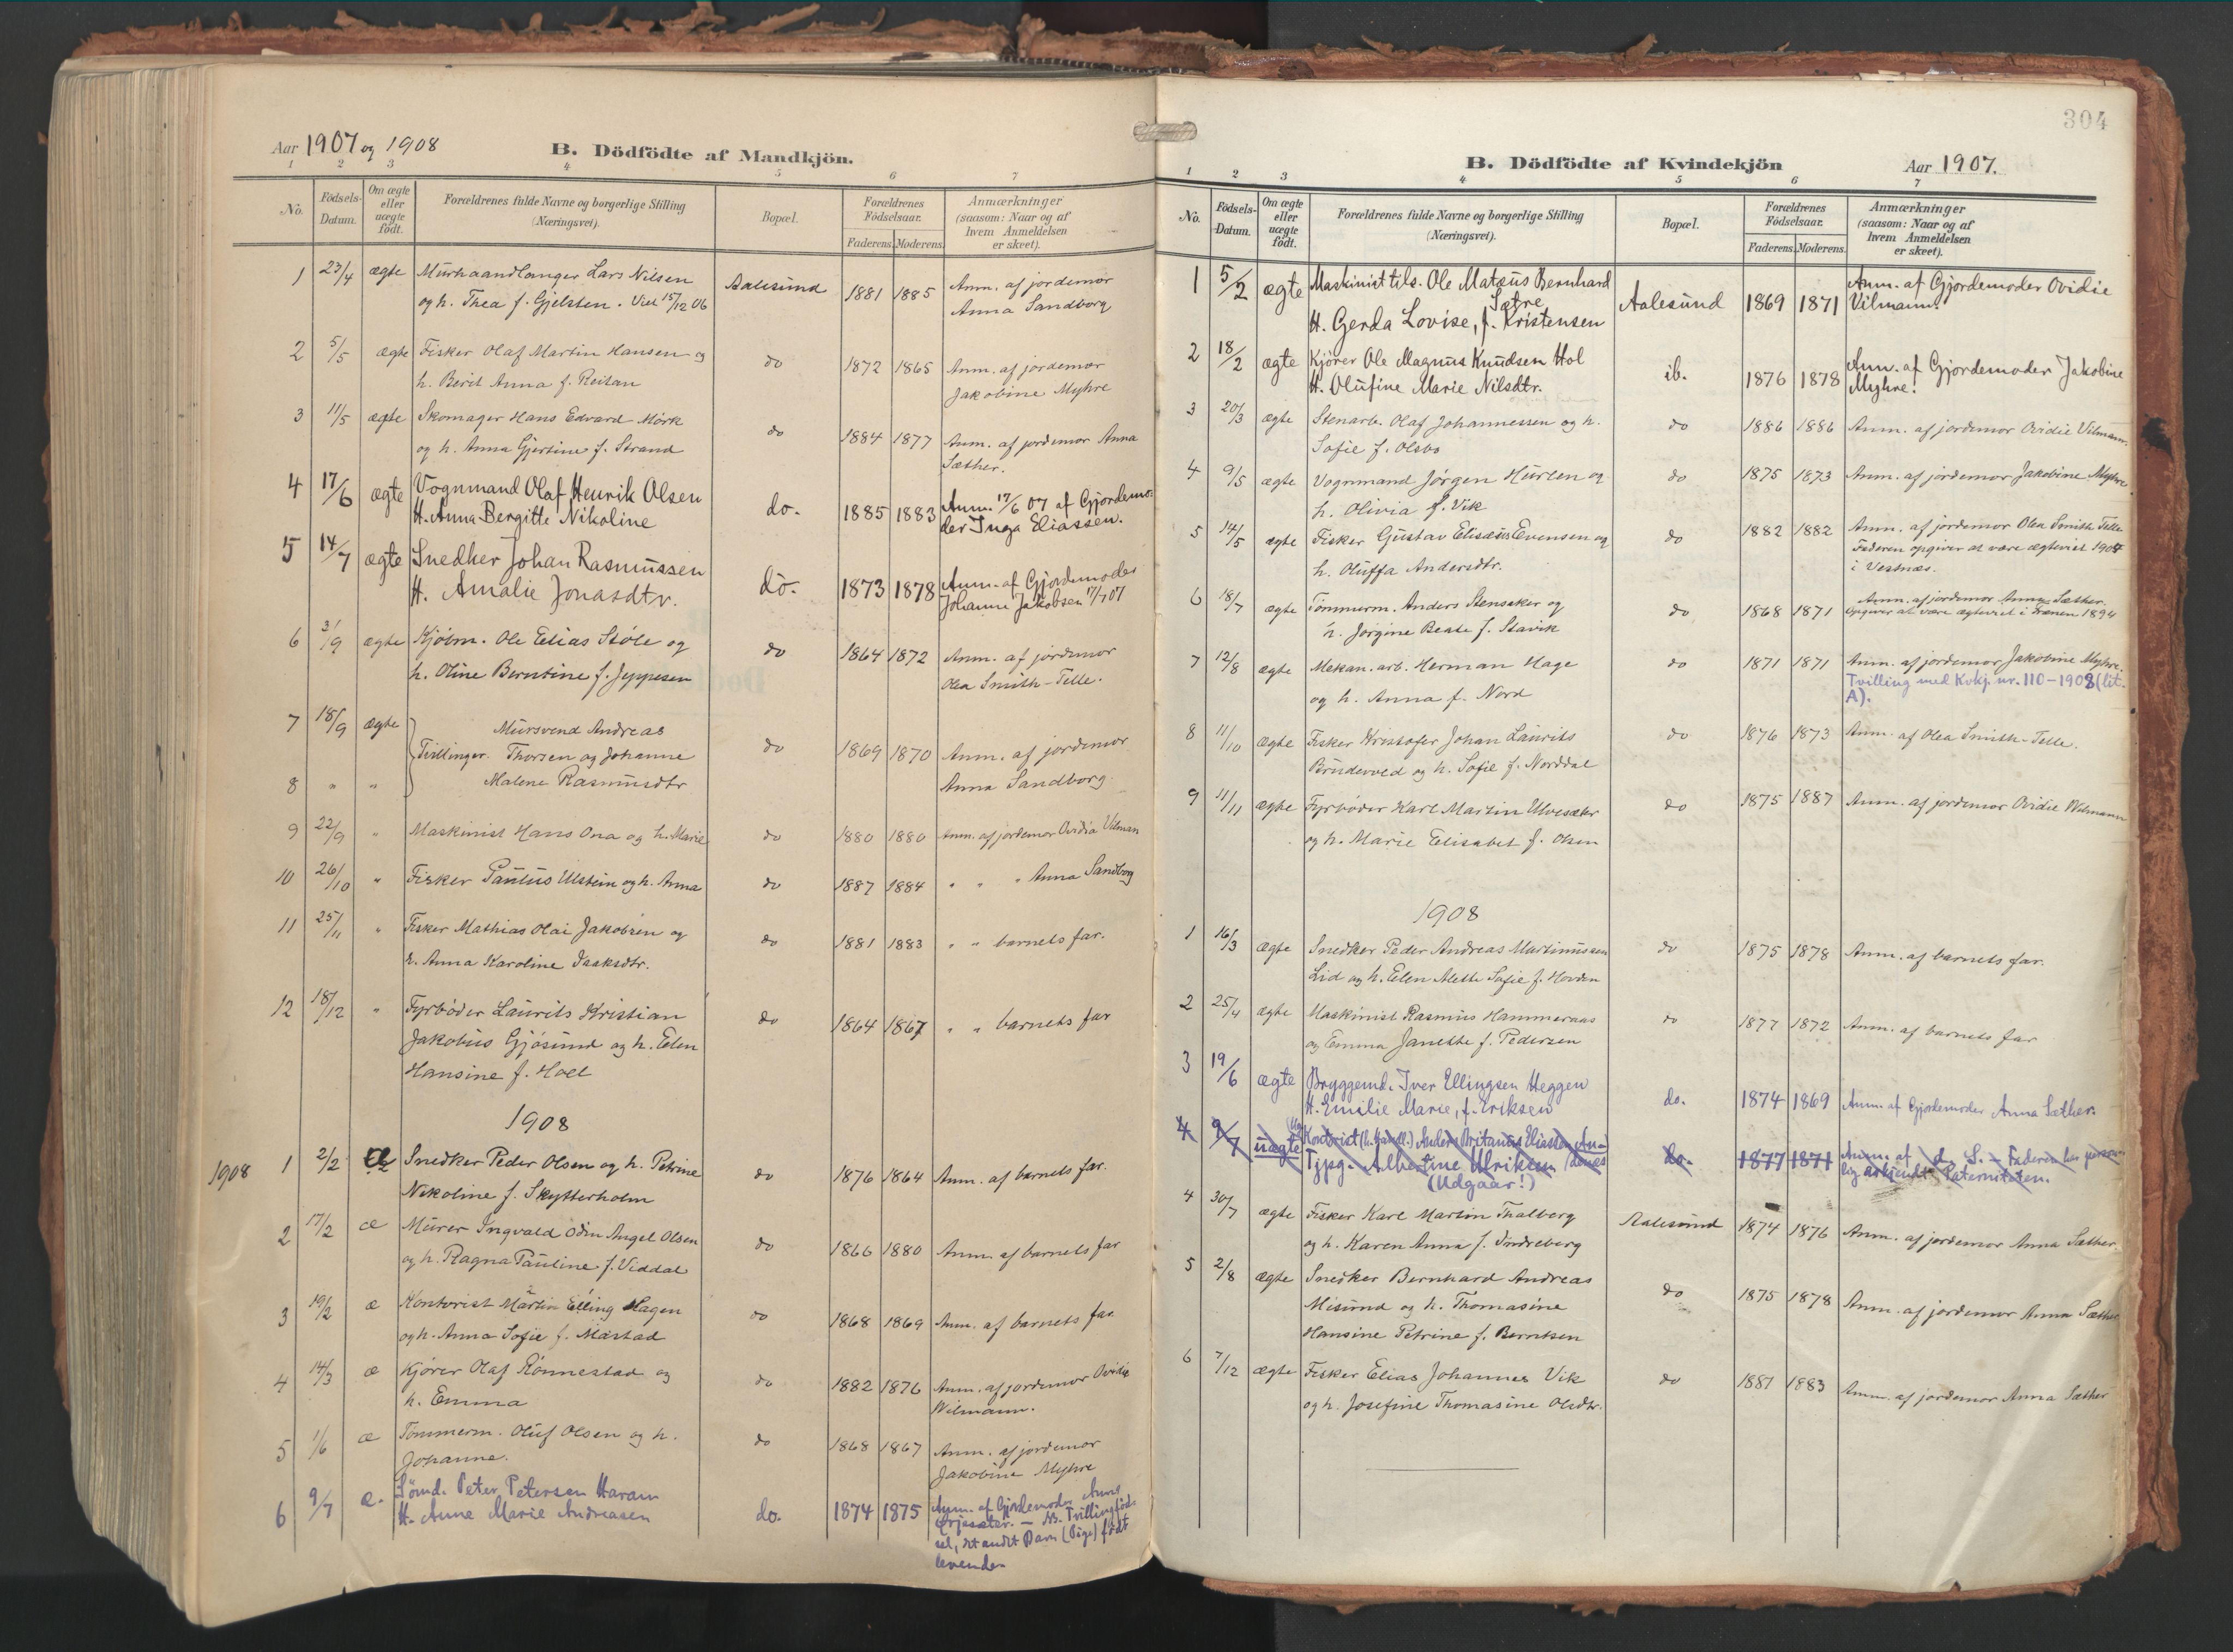 Aar 1907 og 1908
B. Dödfödte af Mandkjön.
1 2 3 4 5 6 7
No.
Födsels-Datum.
Om ægte eller uægte födt.
Forældrenes fulde Navne og borgerlige Stilling (Næringsvei).
Bopæl.
Forældrenes Födselsaar.
Faderens. Moderens.
Anmærkninger (saasom: Naar og af hvem Anmeldelsen er skeet).
1 23/4 ægte Murhaandlanger Lars Nilsen Aalesund 1881 1885 Anm. af jordemor
og h. Thea f. Gjelsten. Viet 15/12 06 Anna Sandborg
2 5/5 ægte Fisker Olaf Martin Hansen og do 1872 1865 Anm. af jordemor
h. Berit Anna f. Reitan Jakobine Myhre
3 11/5 ægte Skomager Hans Edvard Mørk do 1884 1877 Anm. af jordemor Anna
og h. Anna Gjertine f. Strand Sæther.
4 17/6 ægte Vognmand Olaf Henrik Olsen do. 1885 1883 Anm. 17/6 07 af Gjordemo-
H. Anna Bergitte Nikoline der Inga Eliassen.
5 14/7 ægte Snedker Johan Rasmussen do. 1873 1878 Anm. af Gjordemoder
H. Amalie Jonasdtr. Johanne Jakobsen 17/7 07
6 3/9 ægte Kjøbm. Ole Elias Støle og do 1864 1872 Anm. af jordemor
h. Oline Berntine f. Jeppesen Olea Smith-Telle.
7 18/9 ægte Mursvend Andreas
Tvillinger. Thorsen og Johanne do 1869 1870 Anm. af jordemor
8 " " Malene Rasmusdtr Anna Sandborg.
9 22/9 " Maskinist Hans Ona og h. Marie do 1880 1880 Anm. af jordemor Ovidia Vilman
10 26/10 " Fisker Paulus Ulstein og h. Anna do 1887 1884 " " " Anna Sandborg
11 25/11 " Fisker Mathias Olai Jakobsen og do 1881 1883 " " barnets far.
h. Anna Karoline Isaksdtr.
12 18/12 " Fyrbøder Laurits Kristian do 1864 1867 " " barnets far
Jakobus Gjøsund og h. Elen
Hansine f. Hoel
1908
1908 1 2/2 Æ Snedker Peder Olsen og h. Petrine do 1876 1864 Anm. af barnets far.
Nikoline f. Skytterholm
2 17/2 æ Murer Ingvald Odin Angel Olsen do 1866 1880 Anm. af barnets far
og h. Ragna Pauline f. Viddal
3 19/2 æ Kontorist Martin Elling Hagen do 1868 1869 Anm. af barnets far
og h. Anna Sofie f. Mastad
4 14/3 æ Kjører Olaf Rønnestad og do 1882 1876 Anm. af jordemor Ovidie
h. Emma Wilmann.
5 1/6 æ Tømmerm. Oluf Olsen og h. do 1868 1867 Anm. af jordemor
Johanne. Jakobine Myhre
6 9/7 æ. Sømd. Peter Petersen Haram do. 1874 1875 Anm. af Gjordemoder Anne
H. Anne Marie Andreasen Ørjasæter. – NB. Tvillingføds-
sel, det andet Barn (Pige) født
levende.
304
B. Dödfödte af Kvindekjön Aar 1907.
1 2 3 4 5 6 7
No.
Födsels-Datum.
Om ægte eller uægte födt.
Forældrenes fulde Navne og borgerlige Stilling (Næringsvei).
Bopæl.
Forældrenes Födselsaar.
Faderens. Moderens.
Anmærkninger (saasom: Naar og af hvem Anmeldelsen er skeet).
1 5/2 ægte Maskinist tils. Ole Matæus Bernhard Aalesund 1869 1871 Anm. af Gjordemoder Ovidie
Sætre Vilmann.
H. Gerda Lovise, f. Kristensen
2 18/2 ægte Kjører Ole Magnus Knudsen Hol ib. 1876 1878 Anm. af Gjordemoder Jakobine
H. Olufine Marie Nilsdtr. Myhre.
3 20/3 ægte Stenarb. Olaf Johannessen og h. do 1886 1886 Anm. af jordemor Ovidie Vilmann.
Sofie f. Olsbo
4 9/5 ægte Vognmand Jørgen Hurlen og do 1875 1873 Anm. af jordemor Jakobine Myhre
h. Olivia f. Vik
5 14/5 ægte Fisker Gustav Elisæus Evensen og do 1882 1882 Anm. af jordemor Olea Smith Telle
h. Oluffa Andersdtr. Faderen opgiver at være ægteviet 1904
i Vestnæs.
6 18/7 ægte Tømmerm. Anders Stensaker og do 1868 1871 Anm. af jordemor Anna Sæther.
h. Jørgine Beate f. Stavik Opgiver at være ægteviet i Frænen 1894
7 12/8 ægte Mekan. arb. Herman Hage do 1871 1871 Anm. af jordemor Jakobine Myhre.
og h. Anna f. Nord Tvilling med Kvkj. nr. 110-1908 (lit. A).
8 11/10 ægte Fisker Kristofer Johan Laurits do 1876 1873 Anm. af Olea Smith-Telle.
Brudevold og h. Sofie f. Norddal
9 11/11 ægte Fyrbøder Karl Martin Ulvesæter do 1875 1887 Anm. af jordemor Ovidie Wilmann
og h. Marie Elisabet f. Olsen
1908
1 16/3 ægte Snedker Peder Andreas Martinussen do 1875 1878 Anm. af barnets far.
Lid og h. Elen Alette Sofie f. Hovden
2 25/4 ægte Maskinist Rasmus Hammeraas do 1877 1872 Anm. af barnets far
og Emma Janette f. Pedersen
3 19/6 ægte Bryggemd. Iver Ellingsen Heggen do. 1874 1869 Anm. af Gjordemoder Anna Sæther.
H. Emilie Marie, f. Eriksen
4 9/7 uægte Kontorist Anders Eliassen do. 1877 1871 Anm. af d. S. – Faderen har person-
Tjpg. Albertine Ulriksen lig erkjendt Paterniteten.
(Udgaar!)
4 30/7 ægte Fisker Karl Martin Thalberg Aalesund 1874 1876 Anm. af jordemor Anna Sæther.
og h. Karen Anna f. Indreberg
5 2/8 ægte Snedker Bernhard Andreas do 1875 1878 Anm. af jordemor Anna Sæther
Misund og h. Thomasine
Hansine Petrine f. Berntsen
6 7/12 ægte Fisker Elias Johannes Vik do 1881 1883 Anm. af jordemor Anna Sæther
og h. Josefine Thomasine Olsdtr.